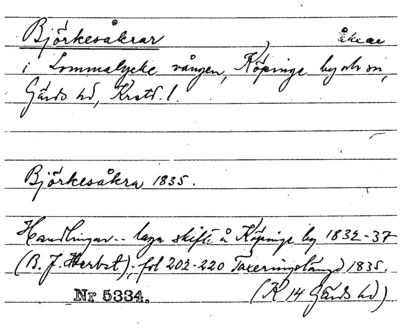 Björkesåkrar åkrar
i Lommalycke vången, Köpinge by och sn,
Gärds hd, Krstd. l.
Björkesåkra 1835.
Handlingar .. laga skifte å Köpinge by 1832-37
(B. J. Herbst); fol 202-220 Taxeringslängd 1835.
Nr 5334. (K 14 Gärds hd)